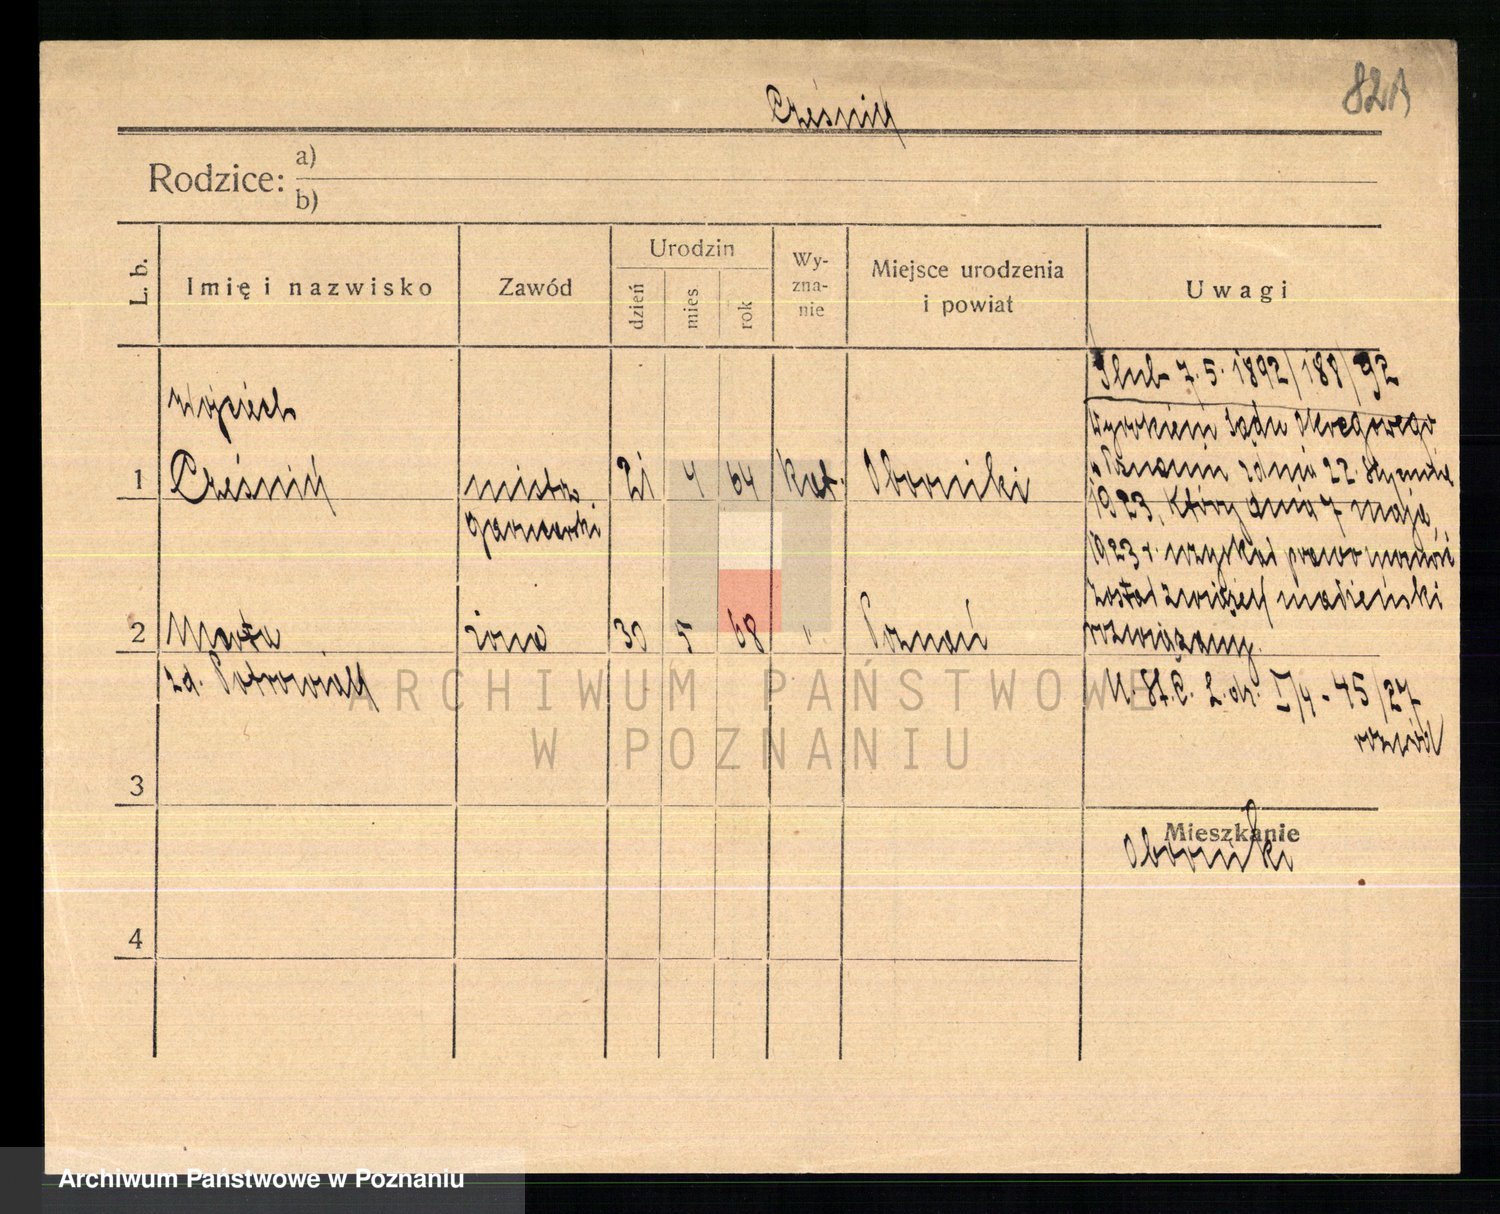 82A
Cześnik
Rodzice:
a)
b)
L. b.
Imię i nazwisko
Zawód
Urodzin
dzień
mies
rok
Wy-
zna-
nie
Miejsce urodzenia
i powiat
Uwagi
Ślub 7. 5. 1892/188/92
Wojciech
1 Cześnik mistrz 21 4 64 kat. Oborniki
garncarski
Wyrokiem Sądu Okręgowego
w Poznaniu z dnia 22. stycznia
1923, który dnia 7 maja
1923 r. uzyskał prawomocność
został związek małżeński
rozwiązany.
2 Marta żona 30 5 68 " Poznań
zd. Piotrowiak
U. St. C. L. dz. I/4 - 45/27
rozwód
3
Mieszkanie
Oborniki
4
ARCHIWUM PAŃSTWOWE
W POZNANIU
Archiwum Państwowe w Poznaniu